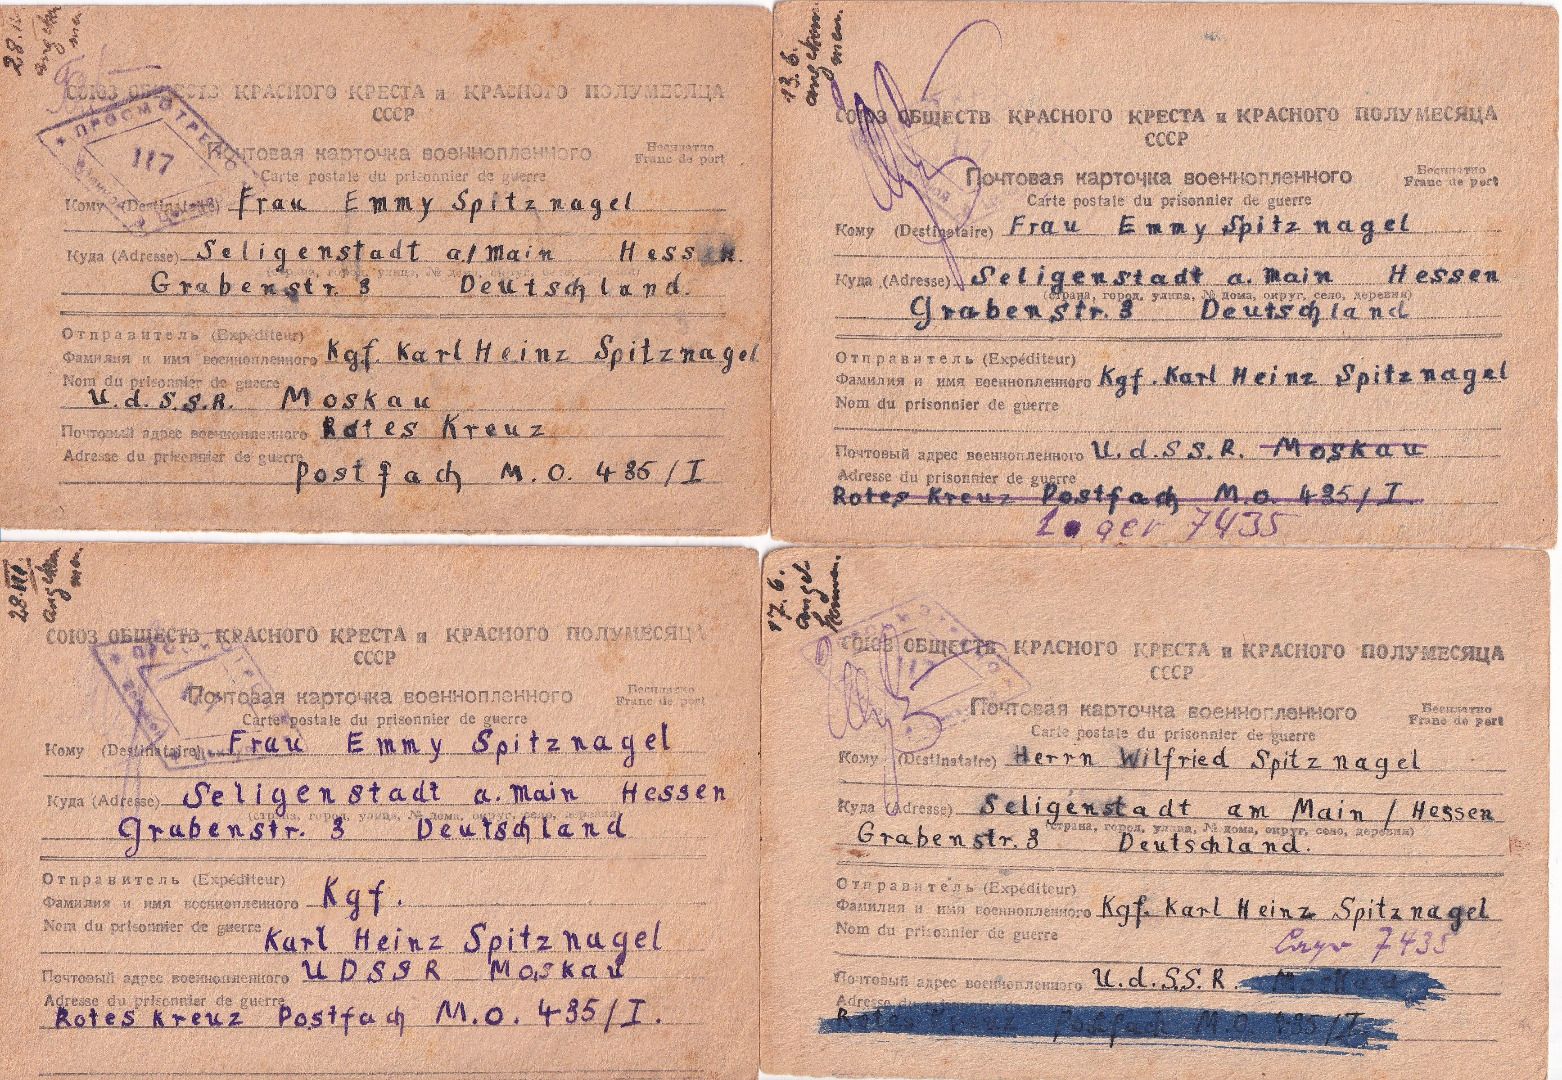 28.
angekom
men.
СОЮЗ ОБЩЕСТВ КРАСНОГО КРЕСТА и КРАСНОГО ПОЛУМЕСЯЦА
СССР
ПРОСМОТРЕНО
117
Почтовая карточка военнопленного
Бесплатно
Franc de port
Carte postale du prisonnier de guerre
Кому (Destinataire) Frau Emmy Spitznagel
Куда (Adresse) Seligenstadt a/main Hessen.
(страна, город, улица, № дома, округ, село, деревня)
Grabenstr. 3 Deutschland.
Отправитель (Expéditeur)
Фамилия и имя военнопленного Kgf. Karl Heinz Spitznagel
Nom du prisonnier de guerre
U.d.S.S.R. Moskau
Почтовый адрес военнопленного Rotes Kreuz
Adresse du prisonnier de guerre
Postfach M.O. 435/I
13.6.
angekom
men.
СОЮЗ ОБЩЕСТВ КРАСНОГО КРЕСТА и КРАСНОГО ПОЛУМЕСЯЦА
СССР
Почтовая карточка военнопленного
Бесплатно
Franc de port
Carte postale du prisonnier de guerre
Кому (Destinataire) Frau Emmy Spitznagel
Куда (Adresse) Seligenstadt a. Main Hessen
(страна, город, улица, № дома, округ, село, деревня)
Grabenstr. 3 Deutschland
Отправитель (Expéditeur)
Фамилия и имя военнопленного Kgf. Karl Heinz Spitznagel
Nom du prisonnier de guerre
Почтовый адрес военнопленного U.d.S.S.R. Moskau
Adresse du prisonnier de guerre
Rotes Kreuz Postfach M.O. 435/I.
Lager 7435
28.VIII
angekom
men.
СОЮЗ ОБЩЕСТВ КРАСНОГО КРЕСТА и КРАСНОГО ПОЛУМЕСЯЦА
СССР
Почтовая карточка военнопленного
Бесплатно
Franc de port
Carte postale du prisonnier de guerre
Кому (Destinataire) Frau Emmy Spitznagel
Куда (Adresse) Seligenstadt a. main Hessen
(страна, город, улица, № дома, округ, село, деревня)
Grabenstr. 3 Deutschland
Отправитель (Expéditeur)
Фамилия и имя военнопленного Kgf.
Nom du prisonnier de guerre Karl Heinz Spitznagel
Почтовый адрес военнопленного UDSSR Moskau
Adresse du prisonnier de guerre
Rotes Kreuz Postfach M.O. 435/I.
17.6.
angek
kommen.
СОЮЗ ОБЩЕСТВ КРАСНОГО КРЕСТА и КРАСНОГО ПОЛУМЕСЯЦА
СССР
117
Почтовая карточка военнопленного
Бесплатно
Franc de port
Carte postale du prisonnier de guerre
Кому (Destinataire) Herrn Wilfried Spitznagel
Куда (Adresse) Seligenstadt am Main / Hessen
(страна, город, улица, № дома, округ, село, деревня)
Grabenstr. 3 Deutschland.
Отправитель (Expéditeur)
Фамилия и имя военнопленного Kgf. Karl Heinz Spitznagel
Nom du prisonnier de guerre
7435
Почтовый адрес военнопленного U.d.S.S.R. Moskau
Adresse du
Rotes Kreuz Postfach M.O. 435/I